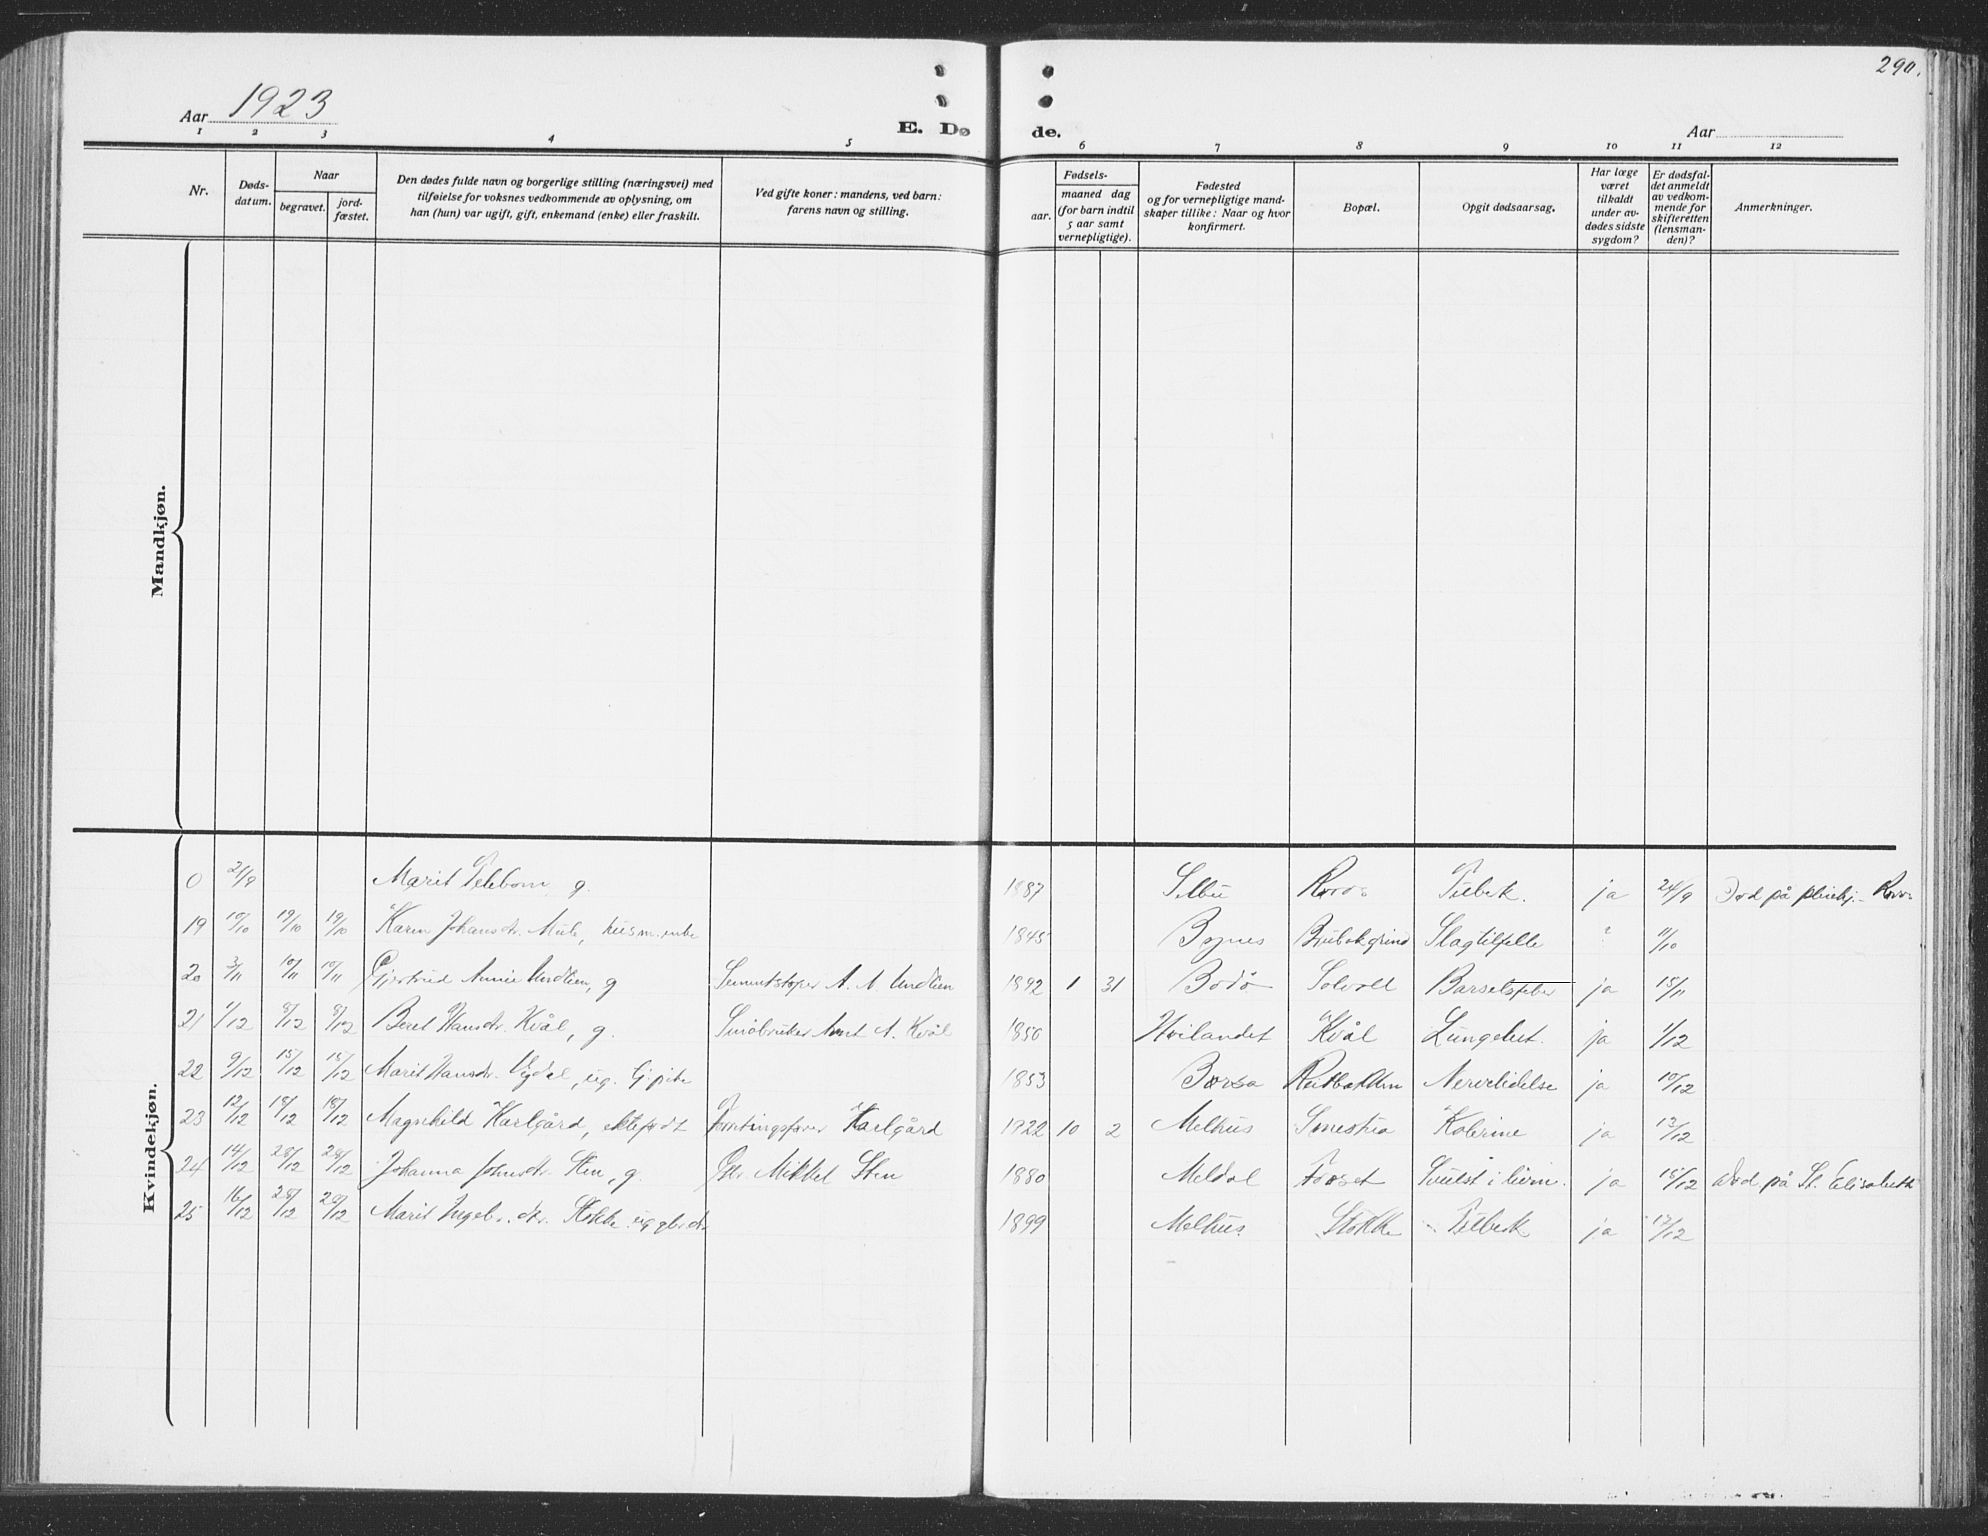 290.
Aar 1923
E. Dø de.
Aar
1 2 3 4 5 6 7 8 9 10 11 12
Nr.
Døds-
datum.
Naar
begravet.
jord-
fæstet.
Den dødes fulde navn og borgerlige stilling (næringsvei) med
tilføielse for voksnes vedkommende av oplysning, om
han (hun) var ugift, gift, enkemand (enke) eller fraskilt.
Ved gifte koner: mandens, ved barn:
farens navn og stilling.
Fødsels-
aar.
maaned dag
(for barn indtil
5 aar samt
vernepligtige).
Fødested
og for vernepligtige mand-
skaper tillike: Naar og hvor
konfirmert.
Bopæl.
Opgit dødsaarsag.
Har læge
været
tilkaldt
under av-
dødes sidste
sygdom?
Er dødsfal-
det anmeldt
av vedkom-
mende for
skifteretten
(lensman-
den)?
Anmerkninger.
Mandkjøn.
Kvindekjøn.
0 21/9 Marit g. 1887 Selbu Røros Tuberk. ja 24/9 Død på pleiehj. Røros
19 10/10 19/10 19/10 Karen Johansdtr. Mule, husm.enke 1845 Bynes Slagtilfelle ? 11/10
20 3/11 10/11 10/11 Gjertrud Annie Undlien, g A. A. Undlien 1892 1 31 Bodø Solvoll Barselfeber ja 15/11
21 1/12 8/12 8/12 Beret Hansdtr. Kvål, g. Småbruker A. Kvål 1850 Hitlandet Kvål Lungebet. ja 1/12
22 9/12 15/12 15/12 Marit Hansdtr. ug. 1853 Børsa Nervelidelse ja 10/12
23 12/12 18/12 18/12 Magnhild Karlgård, ektefødt Karlgård 1922 10 2 Melhus Kolerine ja 13/12
24 14/12 28/12 28/12 Johanna Johnsdtr. Sten, g. Gbr. Mikkel Sten 1880 Meldal Forset Svulst i ja 15/12 død på St. Elisabeth
25 16/12 28/12 28/12 Marit Ingebr. dtr. Stokke ug gbr.dtr 1899 Melhus Stokke Tuberk ja 17/12